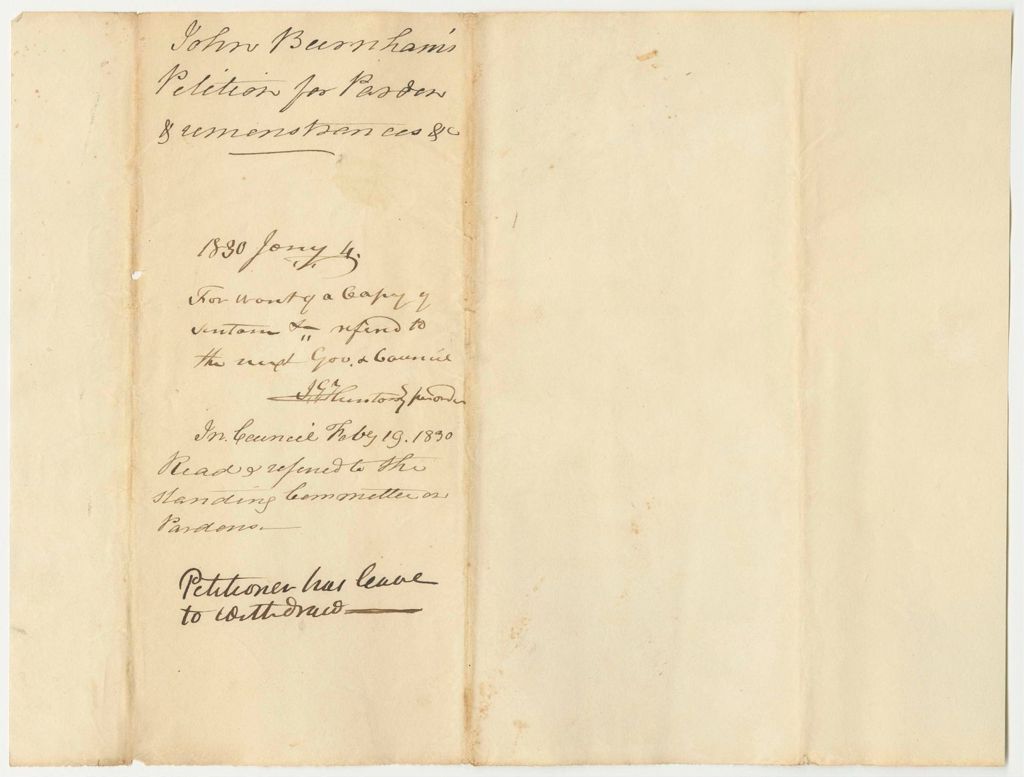 John Burnham's
Petition for Pardon
& remonstrances &c
1830 Jany 4.
For want of a Copy of
sentence &c refered to
the next Gov. & Council
In Council Feby 19. 1830
Read & refered to the
Standing Committee on
Pardons.
Petitioner has leave
to withdraw